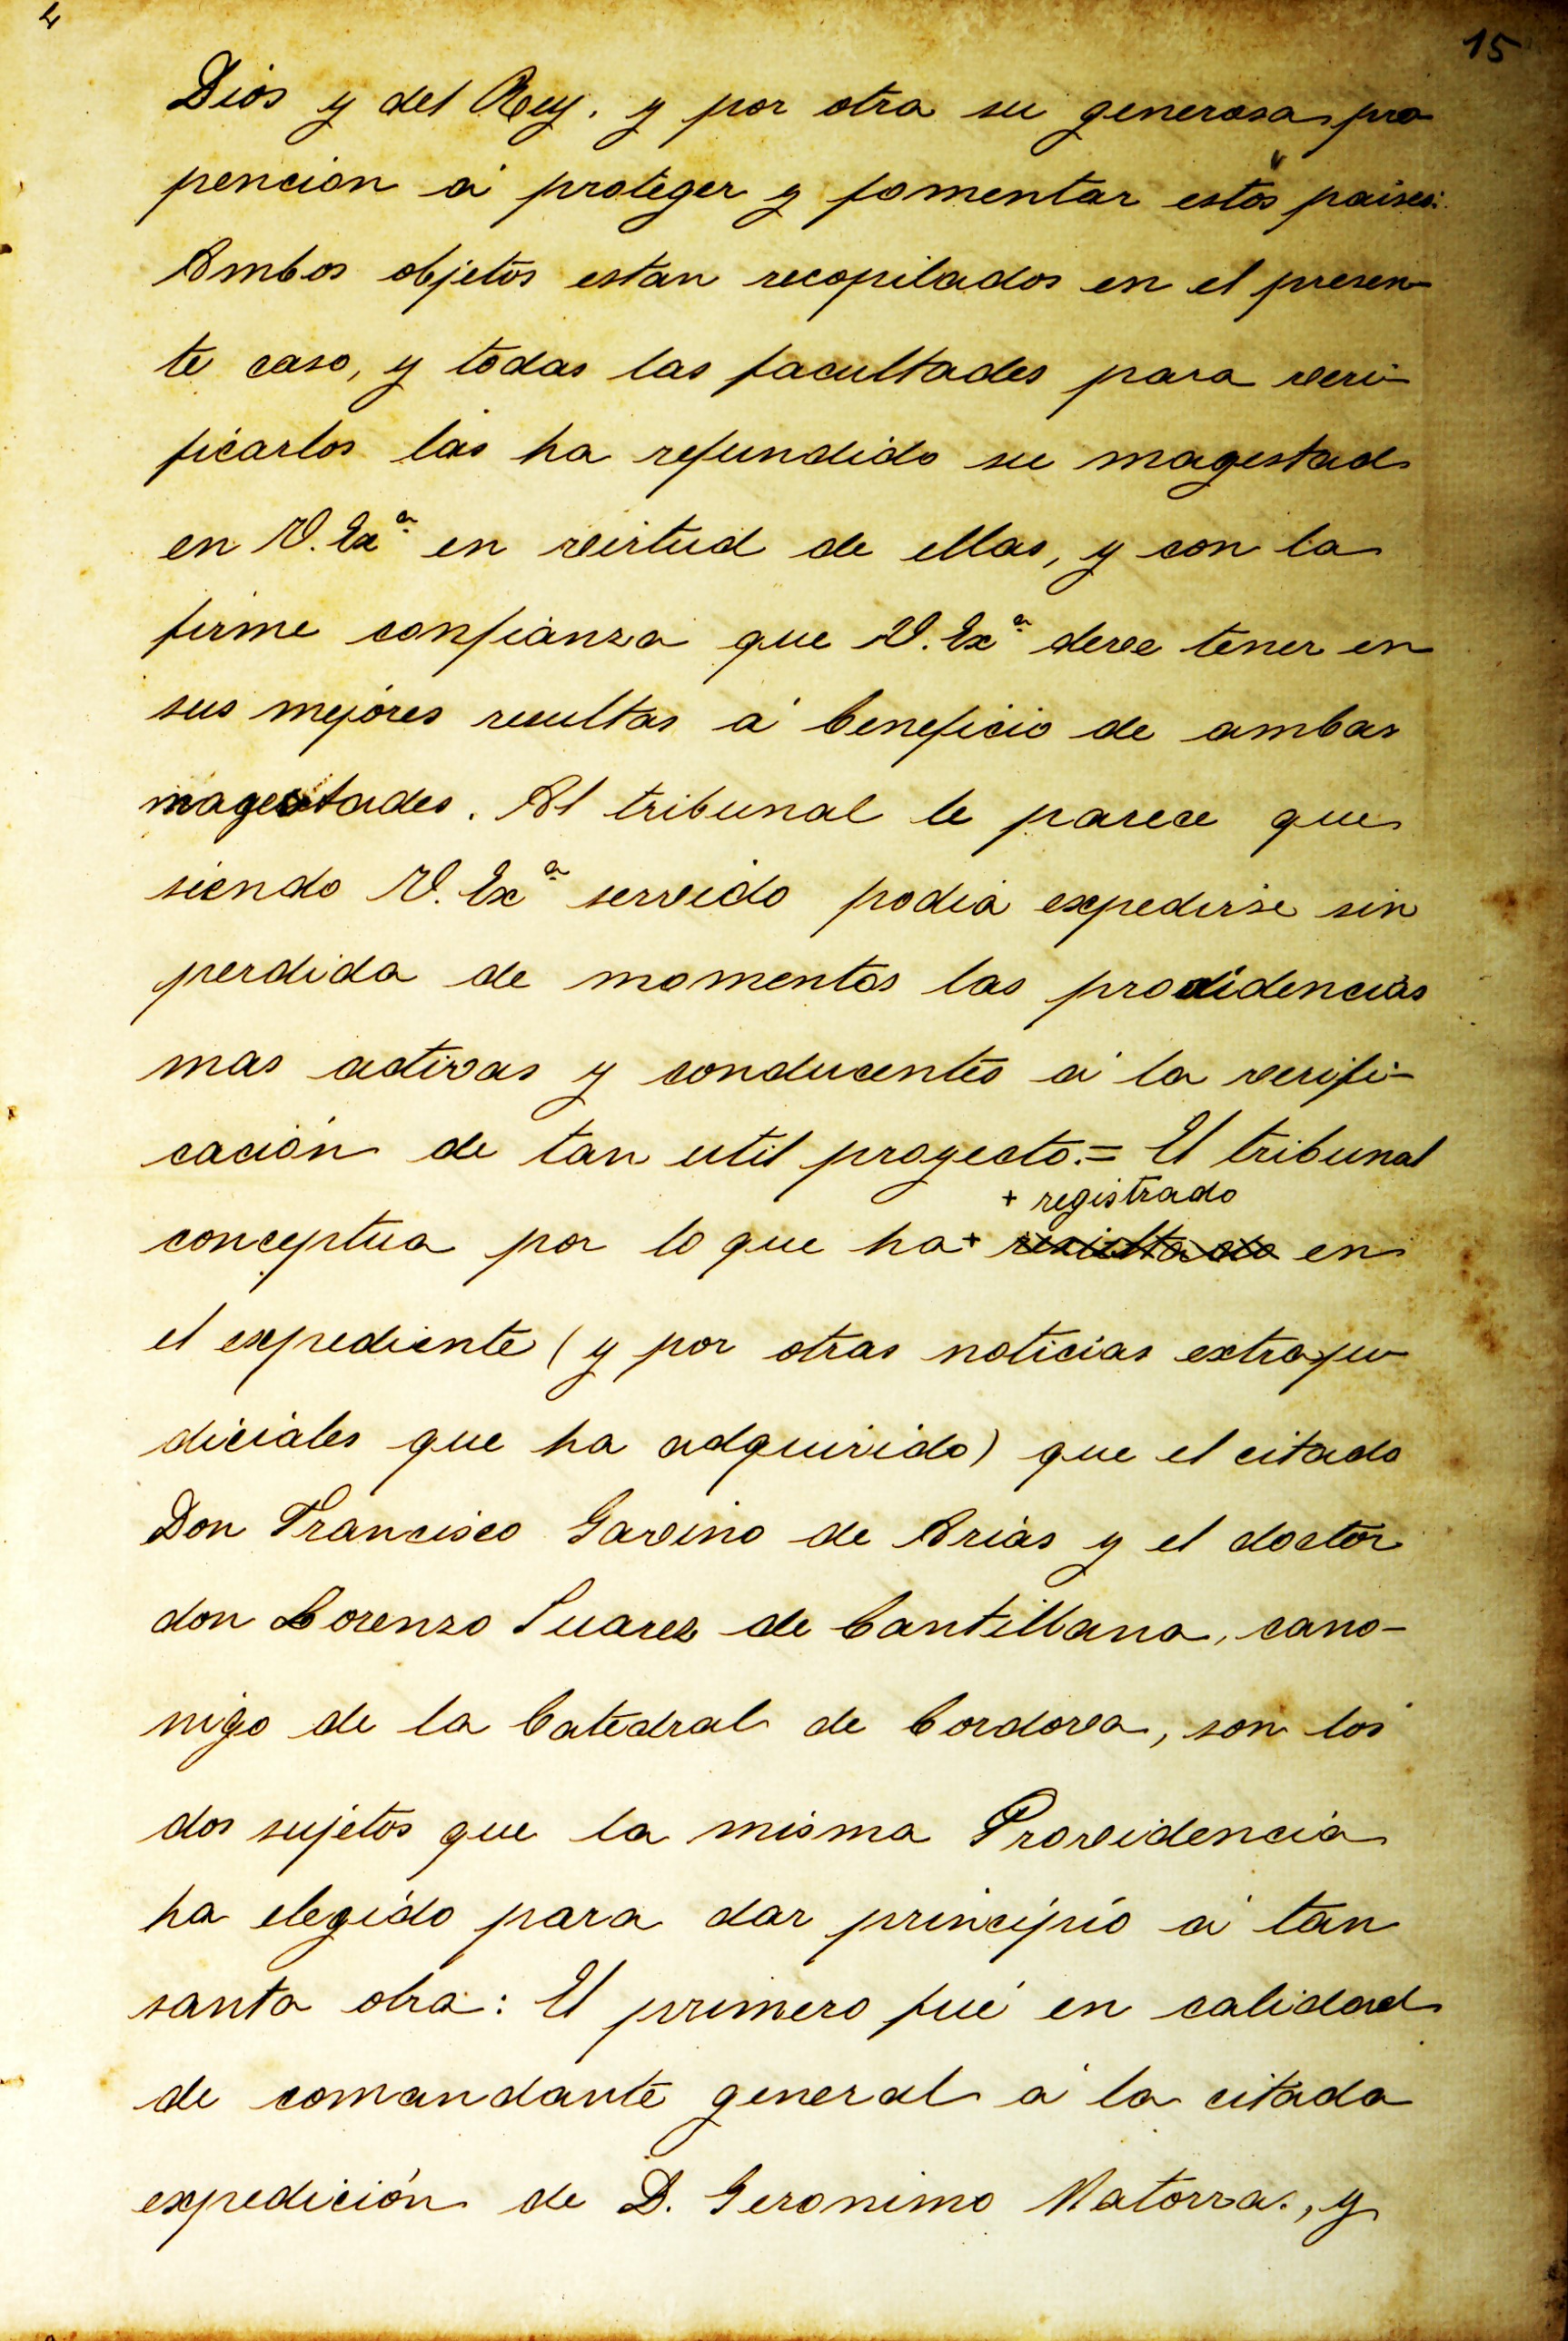 4
15
Dios y del Rey. y por otra su generosa pro
pencion á proteger y fomentar estos paises:
Ambos objetos estan recopilados en el presen-
te caso, y todas las facultades para veri-
ficarlos las ha refundido su magestad
en V. Exª en virtud de ellas, y con la
firme confianza que V. Exª deve tener en
sus mejores resultas á beneficio de ambas
magestades. Al tribunal le parece que
siendo V. Exª servido podia expedirse sin
perdida de momentos las prodidencias
mas activas y conducentes á la verifi-
cación de tan util proyecto.= El tribunal
+ registrado
conceptua por lo que ha + en
el expediente (y por otras noticias extraju-
diciales que ha adquirido) que el citado
Don Francisco Gavino de Arias y el doctor
don Lorenzo Suarez de Cantillana, cano-
nigo de la Catedral de Cordova, son los
dos sujetos que la misma Providencia
ha elegido para dar principio á tan
santa obra: El primero fué en calidad
de comandante general á la citada
expedición de D. Geronimo Matorras, y